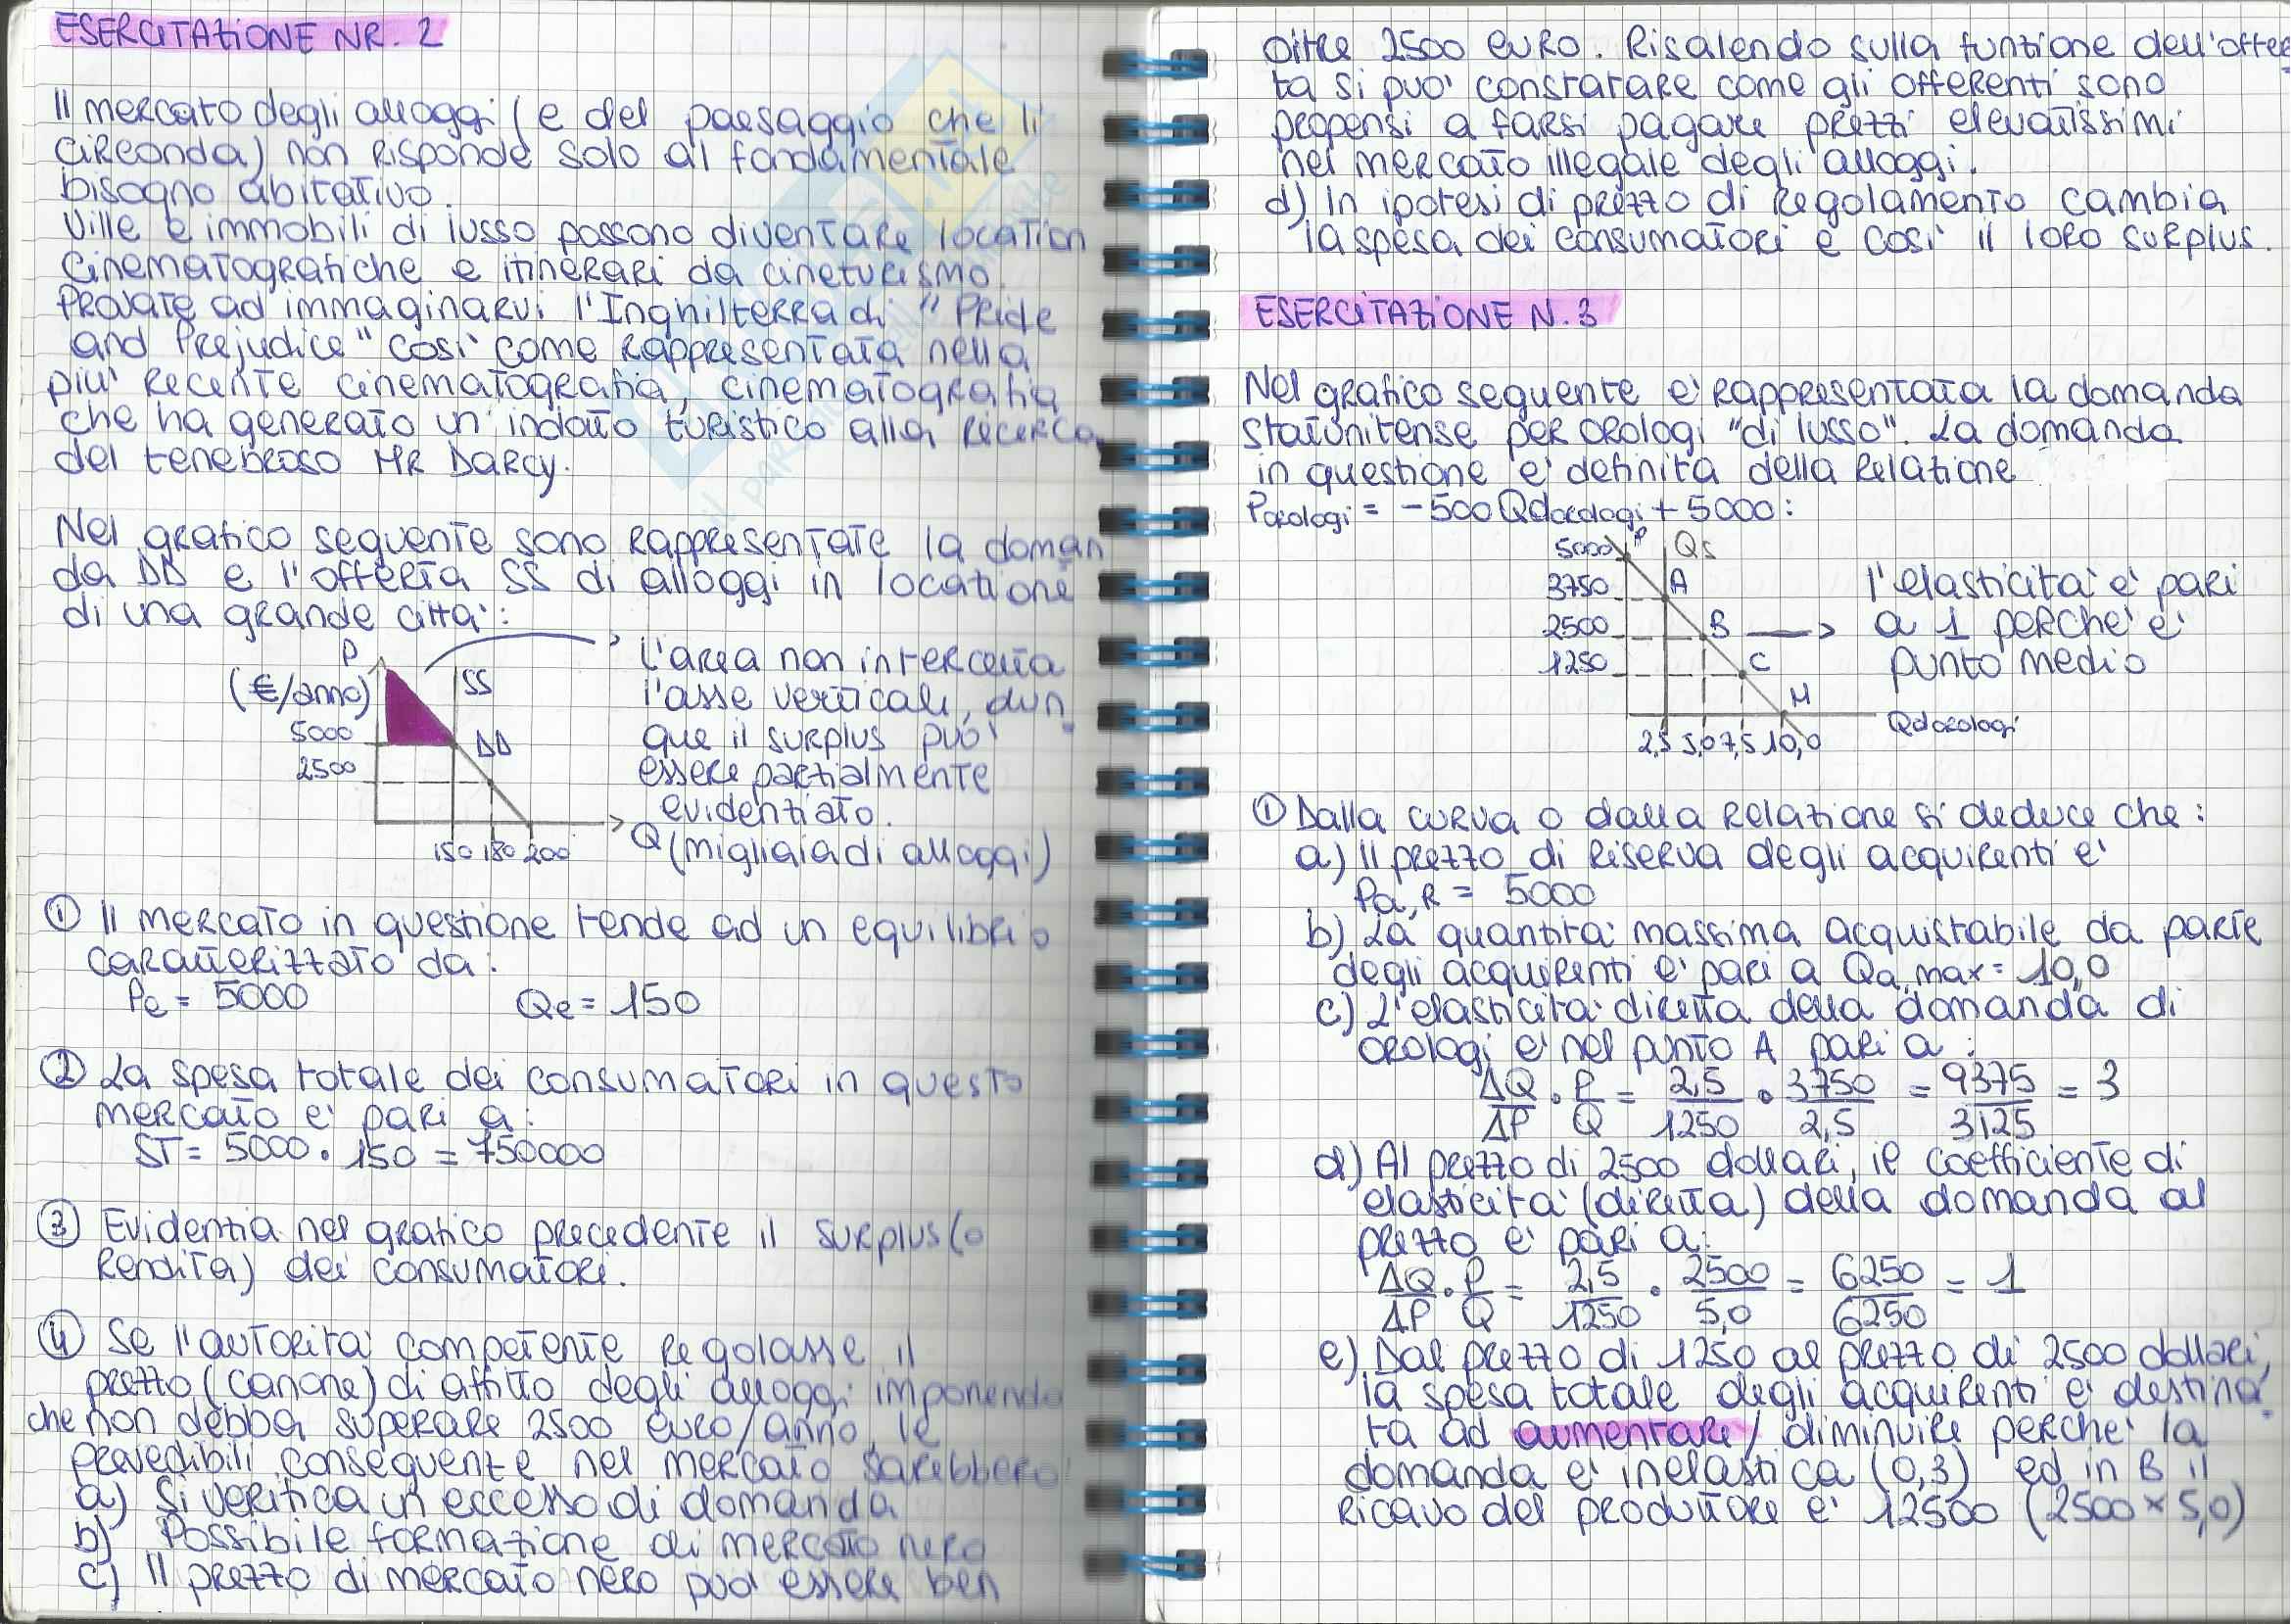 ESERCITAZIONE NR. 2
Il mercato degli alloggi (e del paesaggio che li
circonda) non risponde solo al fondamentale
bisogno abitativo.
Ville e immobili di lusso possono diventare location
cinematografiche e itinerari da cineturismo.
Provate ad immaginarvi l'Inghilterra di "Pride
and Prejudice" così come rappresentata nella
più recente cinematografia, cinematografia
che ha generato un indotto turistico alla ricerca
del tenebroso Mr Darcy.
Nel grafico seguente sono rappresentate la doman
da DD e l'offerta SS di alloggi in locazione
di una grande città:
P
(€/anno)
5000
2500
SS
DD
150 180 200
Q (migliaia di alloggi)
L'area non intercetta
l'asse verticale, dun
que il surplus può
essere parzialmente
evidenziato.
① Il mercato in questione tende ad un equilibrio
caratterizzato da:
Pe = 5000 Qe = 150
② La spesa totale dei consumatori in questo
mercato è pari a:
ST = 5000 · 150 = 750000
③ Evidenzia nel grafico precedente il surplus (o
rendita) dei consumatori.
④ Se l'autorità competente regolasse il
prezzo (canone) di affitto degli alloggi imponendo
che non debba superare 2500 euro/anno, le
prevedibili conseguenze nel mercato sarebbero
a) Si verifica un eccesso di domanda
b) Possibile formazione di mercato nero
c) Il prezzo di mercato nero può essere ben
oltre 2500 euro. Risalendo sulla funzione dell'offer
ta si può constatare come gli offerenti sono
propensi a farsi pagare prezzi elevatissimi
nel mercato illegale degli alloggi.
d) In ipotesi di prezzo di regolamento cambia
la spesa dei consumatori e così il loro surplus.
ESERCITAZIONE N. 3
Nel grafico seguente è rappresentata la domanda
statunitense per orologi "di lusso". La domanda
in questione è definita della relazione
Porologi = -500 Qdorologi + 5000:
P
Qs
5000
3750
2500
1250
A
B
C
M
2,5 5,0 7,5 10,0
Qdorologi
l'elasticità è pari
a 1 perchè è
punto medio
① Dalla curva o dalla relazione si deduce che:
a) Il prezzo di riserva degli acquirenti è
Pa,R = 5000
b) La quantità massima acquistabile da parte
degli acquirenti è pari a Qa,max = 10,0
c) L'elasticità diretta della domanda di
orologi è nel punto A pari a:
ΔQ/ΔP · P/Q = 2,5/1250 · 3750/2,5 = 9375/3125 = 3
d) Al prezzo di 2500 dollari, il coefficiente di
elasticità (diretta) della domanda al
prezzo è pari a:
ΔQ/ΔP · P/Q = 2,5/1250 · 2500/5,0 = 6250/6250 = 1
e) Dal prezzo di 1250 al prezzo di 2500 dollari,
la spesa totale degli acquirenti è destina
ta ad aumentare/diminuire perchè la
domanda è inelastica (0,3) ed in B il
ricavo del produttore è 12500 (2500 × 5,0)